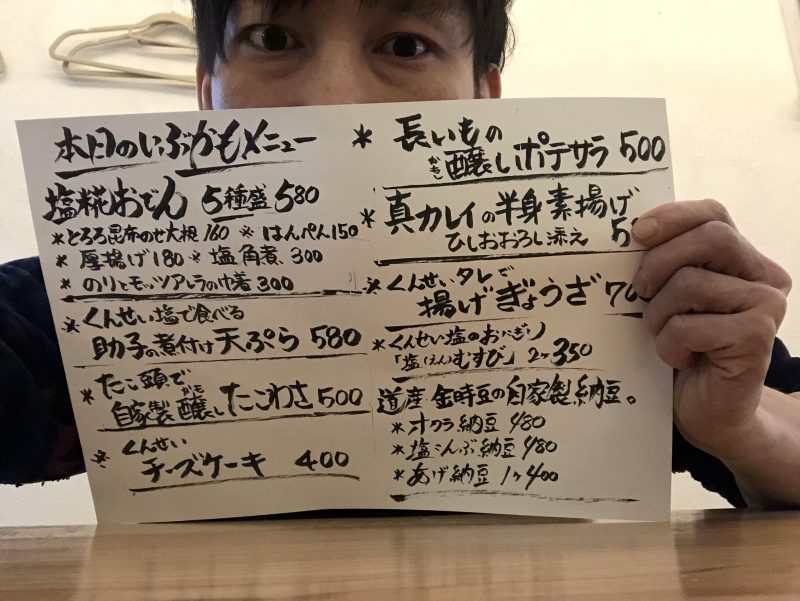 本日のいぶかもメニュー
塩糀おでん 5種盛 580
*とろろ昆布のせ大根 160 *はんぺん 150
*厚揚げ 180 *塩角煮 300
*のりとモッツアレラの巾着 300
*くんせい塩で食べる
助子の煮付け天ぷら 580
*たこ頭で
自家製醸したこわさ 500
かも
*くんせい
チーズケーキ 400
*長いもの
醸しポテサラ 500
かもし
*真カレイの半身素揚げ
ひしおおろし添え
*くんせいタレで
揚げぎょうざ
*くんせい塩のおにぎり
「塩(えん)むすび」 2ヶ 350
道産 金時豆の自家製納豆。
*オクラ納豆 480
*塩こんぶ納豆 480
*あげ納豆 1ヶ 400